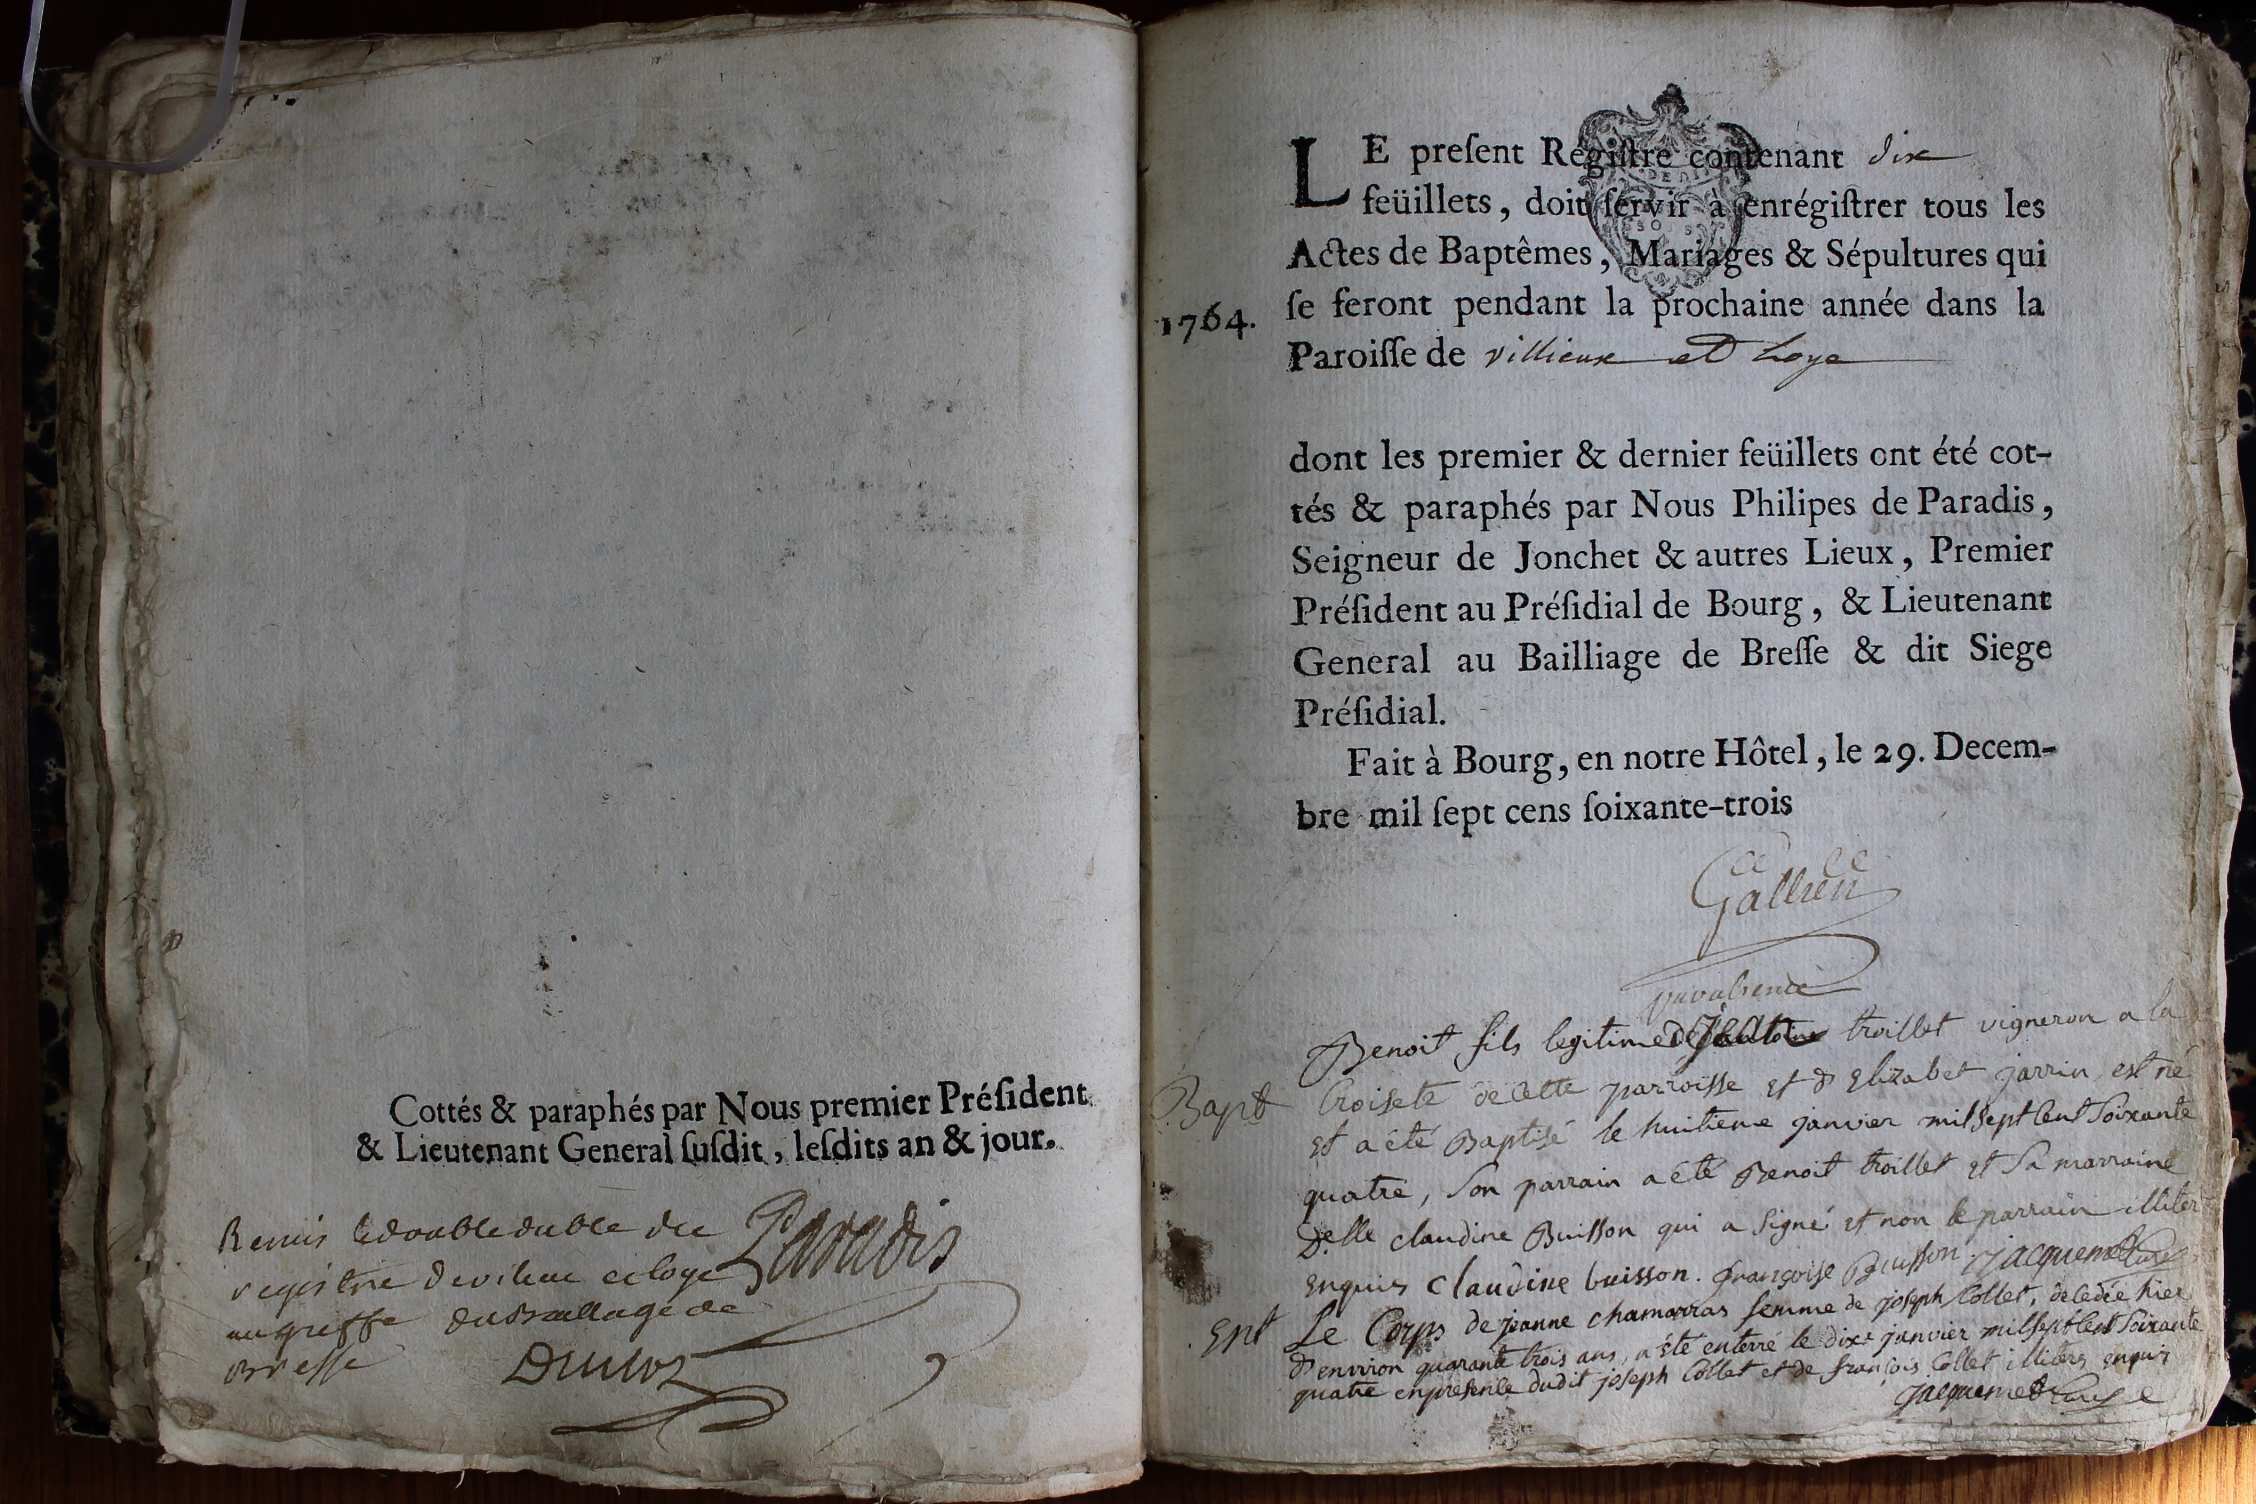 Cottés & paraphés par Nous premier Préſident
& Lieutenant General ſuſdit, leſdits an & jour.
Remis le double du
Paradis
registre de et loye
au greffe du Baillage de
Bresse
1764.
LE preſent Regiſtre contenant dix
feüillets, doit ſervir à enrégiſtrer tous les
Actes de Baptêmes, Mariages & Sépultures qui
ſe feront pendant la prochaine année dans la
Paroiſſe de villieux et Loye
dont les premier & dernier feüillets ont été cot-
tés & paraphés par Nous Philipes de Paradis,
Seigneur de Jonchet & autres Lieux, Premier
Préſident au Préſidial de Bourg, & Lieutenant
General au Bailliage de Breſſe & dit Siege
Préſidial.
Fait à Bourg, en notre Hôtel, le 29. Decem-
bre mil ſept cens ſoixante-trois
Gallien
Benoit fils legitime de troillet vigneron a la
Bapt
Croisete de cette parroisse et d Elizabet jarrin est né
et a été Baptisé le huitieme janvier mil sept cent soixante
quatre, son parrain a été Benoit troillet et sa marraine
Delle claudine Buisson qui a signé et non le parrain illiter
enquis claudine buisson. françoise Buisson. jacquemet curé
Ent
Le Corps de jeanne chamarras femme de joseph Collet, décédée hier
d'environ quarante trois ans, a été enterré le dixe janvier mil sept cent soixante
quatre en presence dudit joseph Collet et de françois Collet illiters enquis
jacquemet curé